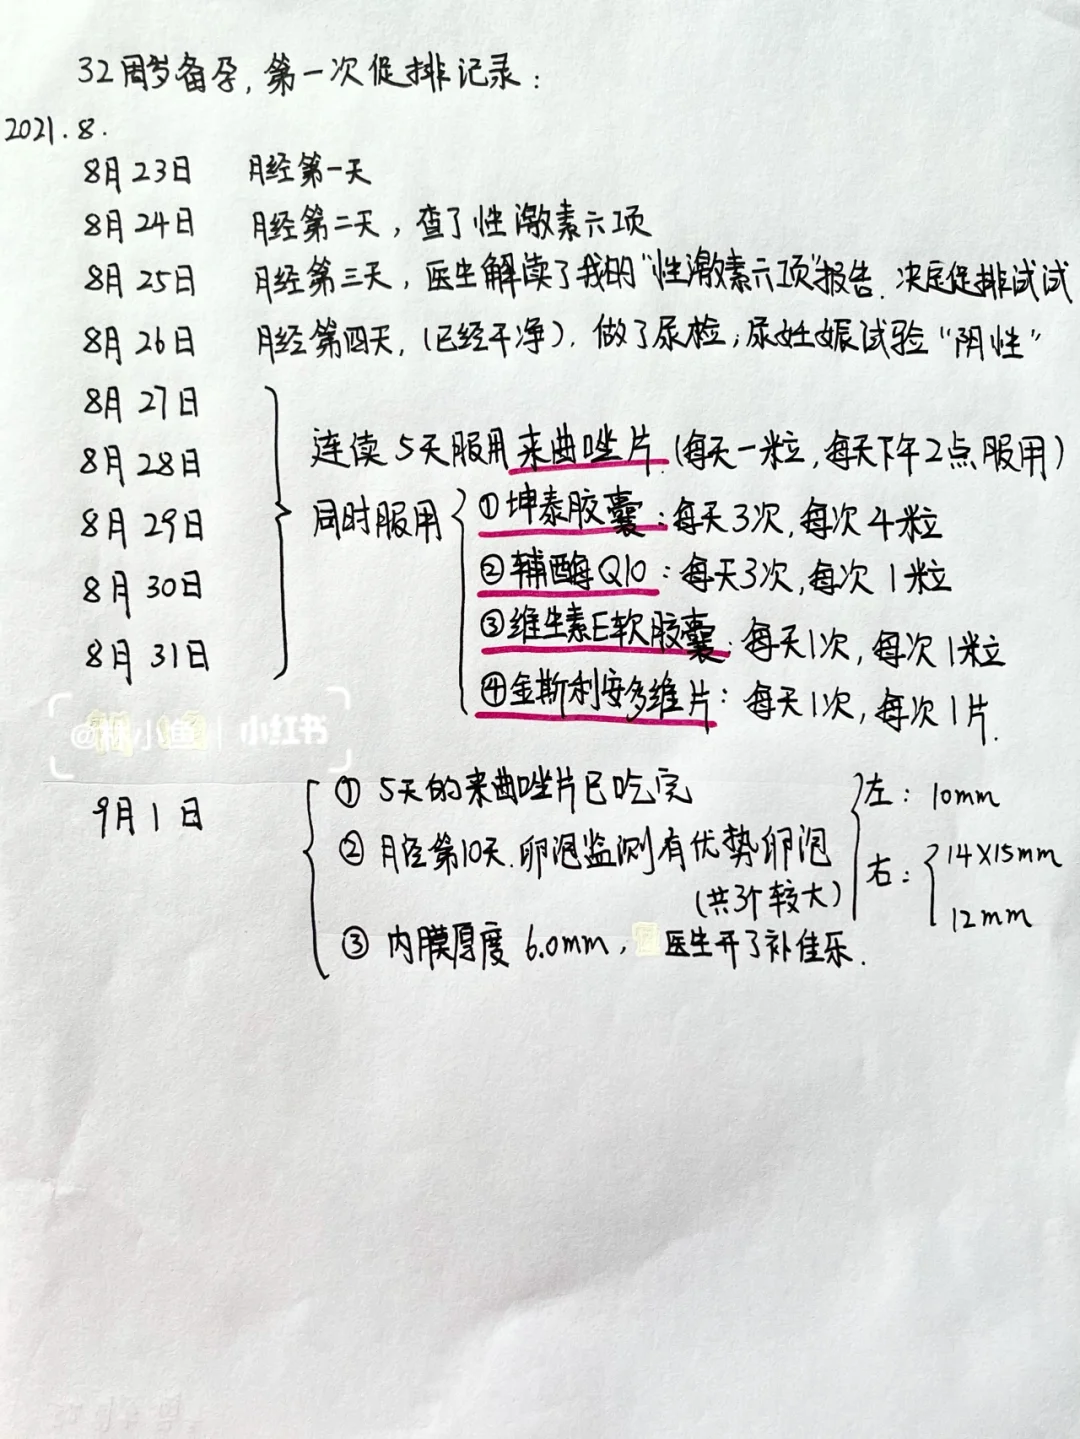 32周岁备孕，第一次促排记录：
2021.8.
8月23日 月经第一天
8月24日 月经第二天，查了性激素六项
8月25日 月经第三天，医生解读了我的“性激素六项”报告.决定促排试试
8月26日 月经第四天，(已经干净)，做了尿检；尿妊娠试验“阴性”
8月27日
8月28日 连续5天服用来曲唑片(每天一粒，每天下午2点服用)
8月29日 同时服用 ①坤泰胶囊：每天3次，每次4粒
②辅酶Q10：每天3次，每次1粒
8月30日
③维生素E软胶囊：每天1次，每次1粒
8月31日
④金斯利安多维片：每天1次，每次1片.
小鱼 | 小红书
9月1日 ①5天的来曲唑片已吃完 左：10mm
②月经第10天.卵泡监测有优势卵泡 右：14X15mm
(共3个较大) 12mm
③内膜厚度6.0mm，医生开了补佳乐.